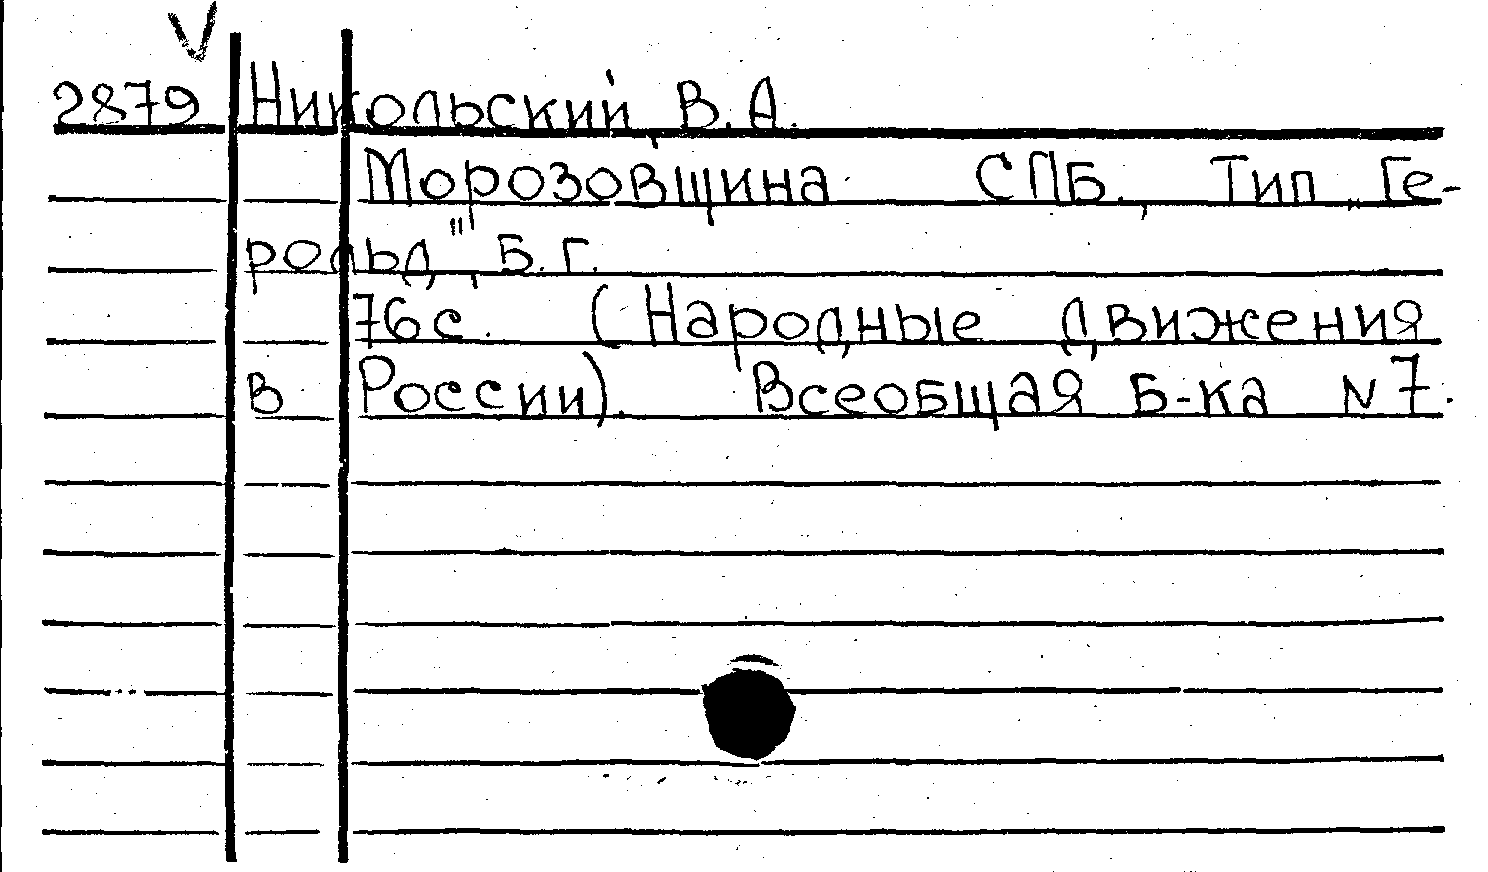 V
2879 Никольский, В.А.
Морозовщина СПБ., Тип „Ге-
рольд", Б. г.
76 с. (Народные движения
в России). Всеобщая Б-ка N 7.